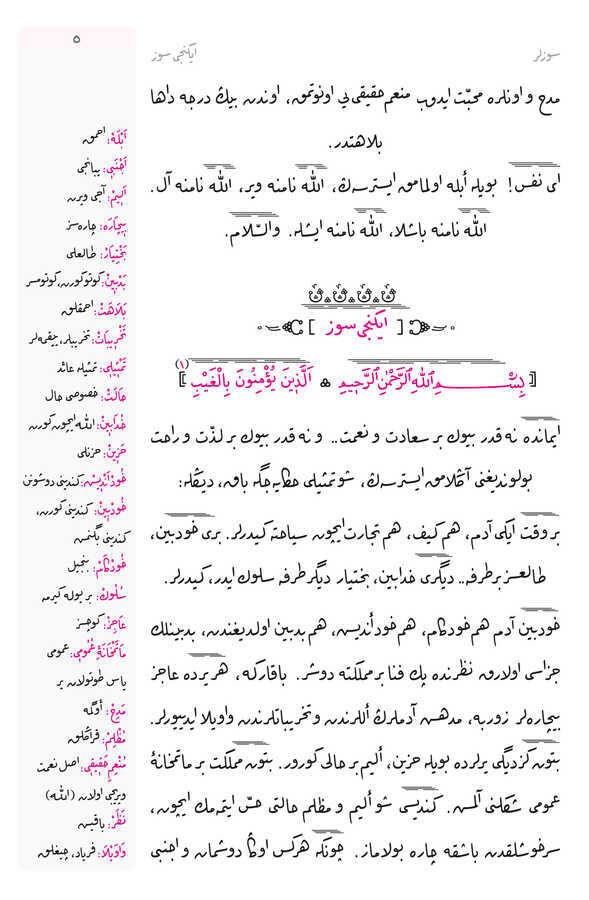 سوزلر
ايكنجی سوز
٥
مدح و اونلره محبّت ايدوب منعم حقيقی‌يی اونوتمق، اوندن بيڭ درجه داها
بلاهتدر.
ای نفس! بويله أبله اولمامق ايسترسه‌ڭ، اللّٰه نامنه وير، اللّٰه نامنه آل.
اللّٰه نامنه باشلا، اللّٰه نامنه ايشله. والسّلام.
[ايكنجی سوز]
﴿بِسْمِ اللّٰهِ الرَّحْمٰنِ الرَّحٖيمِ ۞ اَلَّذٖينَ يُؤْمِنُونَ بِالْغَيْبِ﴾ (١)
ايمانده نه قدر بيوك بر سعادت و نعمت.. و نه قدر بيوك بر لذّت و راحت
بولونديغنی آڭلامق ايسترسه‌ڭ، شو تمثيلی حكايه‌جگه باق، ديڭله:
بر وقت ايكی آدم، هم كيف، هم تجارت ايچون سياحته كيدرلر. بری خودبين،
طالعسز بر طرفه.. ديگری خدابين، بختيار ديگر طرفه سلوك ايدر، كيدرلر.
خودبين آدم هم خودكام، هم خودأنديش، هم بدبين اولديغندن، بدبينلك
جزاسی اولارق نظرنده پك فنا بر مملكته دوشر. باقاركه، هر يرده عاجز
بيچاره‌لر زوربه، مدهش آدملرڭ أللرندن و تخريباتلرندن واويلا ايديیورلر.
بتون كزديگی يرلرده بويله حزين، أليم بر حالی كورور. بتون مملكت بر ماتمخانهٔ
عمومی شكلنی آلمش. كنديسی شو أليم و مظلم حالتی حسّ ايتمه‌مك ايچون،
سرخوشلقدن باشقه چاره بولاماز. چونكه هركس اوڭا دوشمان و اجنبی
أَبْلَهْ: احمق
أَجْنَبِی: يبانجی
أَلِيمْ: آجی ويرن
بِيچَارَه: چاره‌سز
بَخْتِيَارْ: طالعلی
بَدْبِينْ: كوتو كورن، كوتومسر
بَلَاهَتْ: احمقلق
تَخْرِيبَاتْ: تخريبلر، ييقمه‌لر
تَمْثِيلِی: تمثيله عائد
حَالَتْ: خصوصی حال
خُدَابِينْ: اللّٰه ايچون كورن
حَزِينْ: حزنلی
خُودْأَنْدِيشْ: كندينی دوشونن
خُودْبِينْ: كندينی كورن،
كندينی بگنمش
خُودْكَامْ: بنجيل
سُلُوكْ: بر يوله كيرمه
عَاجِزْ: كوجسز
مَاتَمْخَانَهٔ عُمُومِی: عمومی
ياس طوتولان ير
مَدِحْ: أوگمه
مُظْلِمْ: قراڭلق
مُنْعِمِ حَقِيقِی: اصل نعمت
ويريجی اولان (اللّٰه)
نَظَرْ: باقيش
وَاوَيْلَا: فرياد، چيغلق